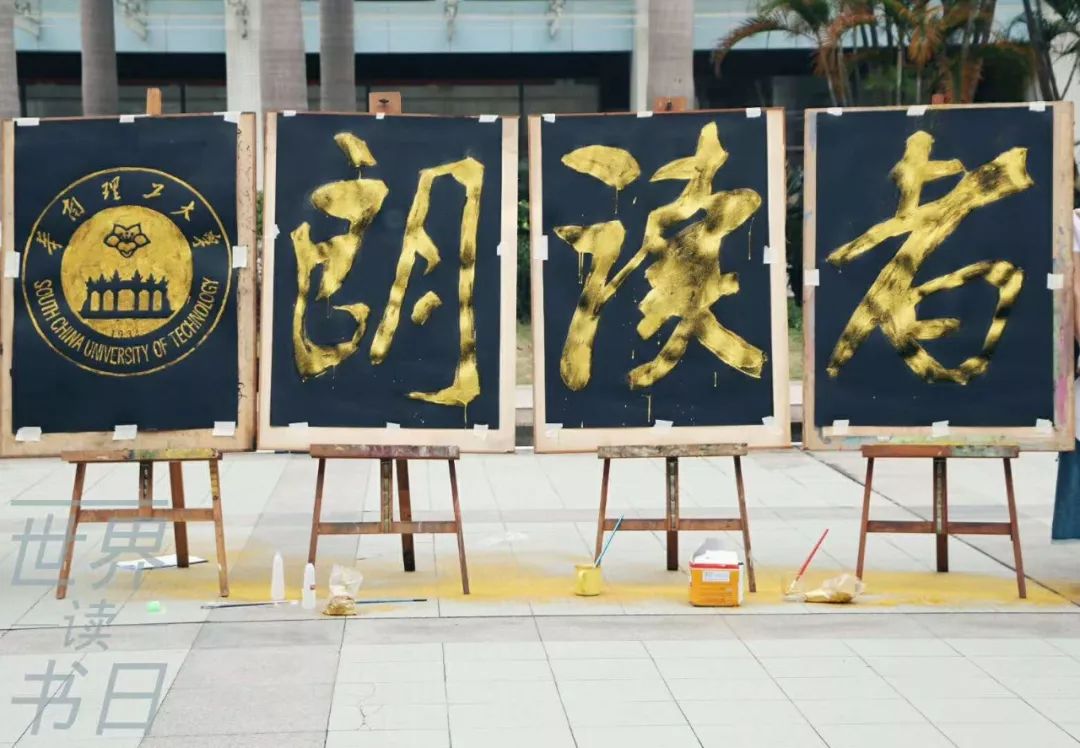 華南理工大學
SOUTH CHINA UNIVERSITY OF TECHNOLOGY
1934
朗读者
世界
读
书日